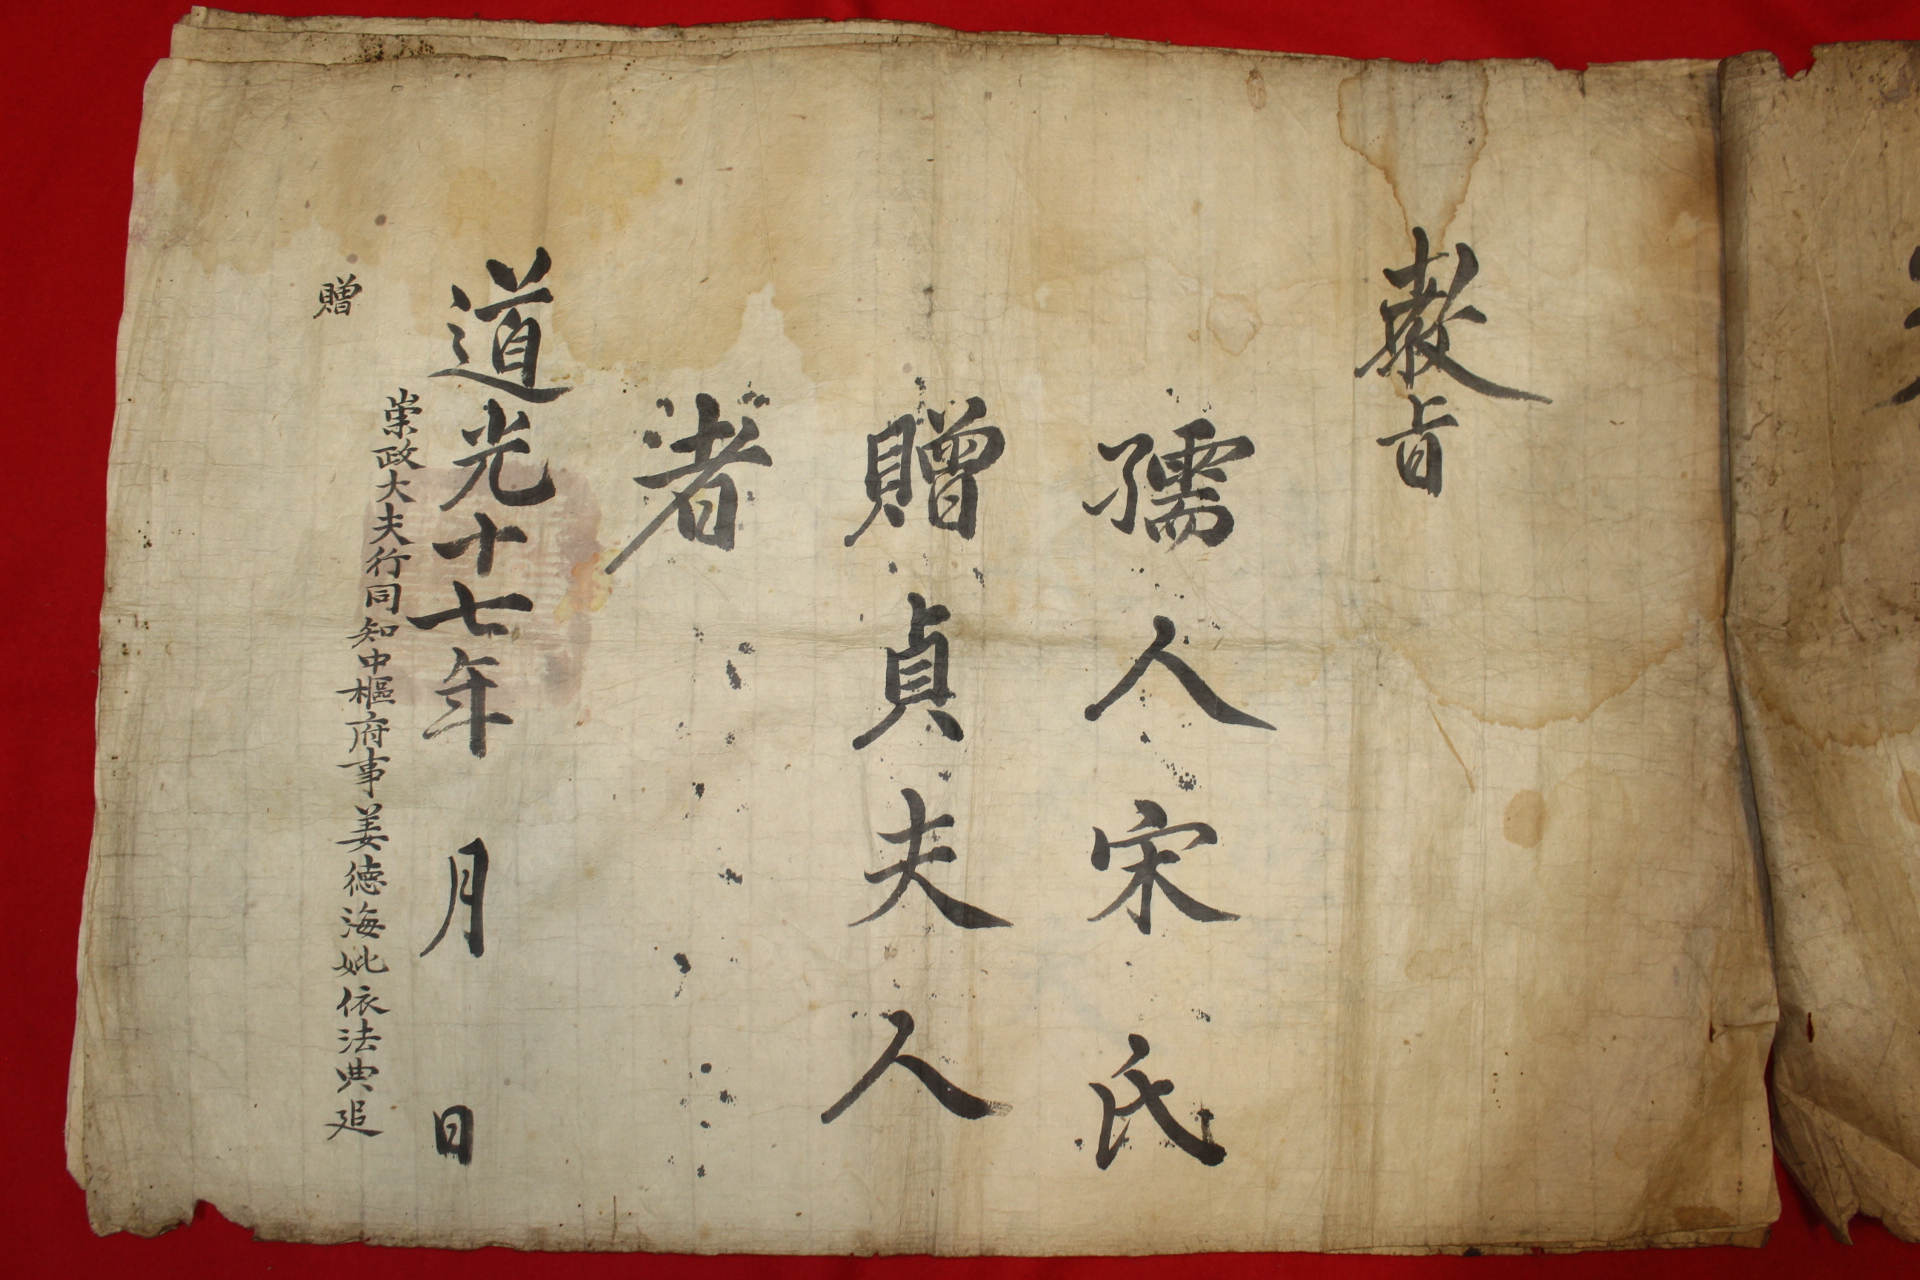 敎旨
孺人宋氏
贈貞夫人
者
道光十七年 月 日
崇政大夫行同知中樞府事姜德海妣依法典追
贈